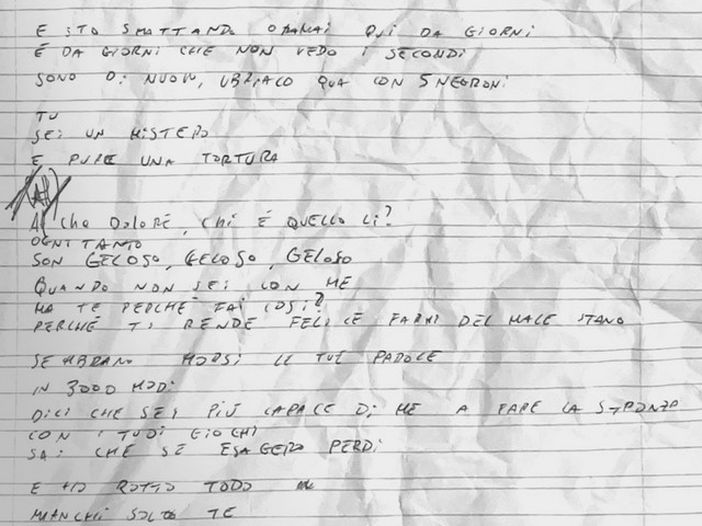 E STO SMATTANDO ORAMAI QUI DA GIORNI
È DA GIORNI CHE NON VEDO I SECONDI
SONO DI NUOVO, UBRIACO QUA CON 5 NEGRONI
TU
SEI UN MISTERO
E PURE UNA TORTURA
AI CHE DOLORE, CHI É QUELLO LI?
OGNI TANTO
SON GELOSO, GELOSO, GELOSO
QUANDO NON SEI CON ME
MA TE PERCHÉ FAI COSI?
PERCHÉ TI RENDE FELICE FARMI DEL MALE STANO
SEMBRANO MORSI LE TUE PAROLE
IN 3000 MODI
DICI CHE SEI PIÙ CAPACE DI ME A FARE LA STRONZA
CON I TUOI GIOCHI
SAI CHE SE ESAGERO PERDI
E HO ROTTO TODO
MANCHI SOLTO TE